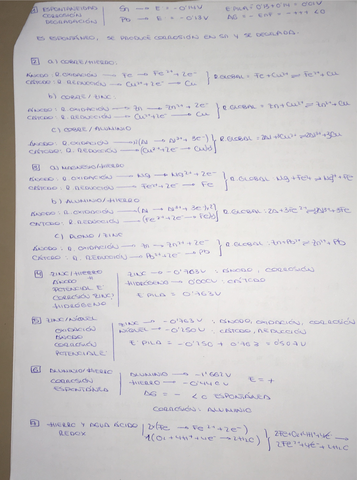 ESPONTANEIDAD
CORROSIÓN
DEGRADACIÓN
Sn → E = -0'14V
Pb → E = -0'13V
ES ESPONTÁNEO, SE PRODUCE CORROSIÓN EN Sn Y SE DEGRADA.
2 a) COBRE/HIERRO:
ÁNODO: R. OXIDACIÓN → Fe → Fe²⁺ + 2e⁻
CÁTODO: R. REDUCCIÓN → Cu²⁺ + 2e⁻ → Cu
R. GLOBAL = Fe + Cu²⁺ → Fe²⁺ + Cu
b) COBRE/ZINC:
ÁNODO: R. OXIDACIÓN → Zn → Zn²⁺ + 2e⁻
CÁTODO: R. REDUCCIÓN → Cu²⁺ + 2e⁻ → Cu
R. GLOBAL = Zn + Cu²⁺ → Zn²⁺ + Cu
c) COBRE/ALUMINIO
ÁNODO: R. OXIDACIÓN → (Al → Al³⁺ + 3e⁻)
CÁTODO: R. REDUCCIÓN → (Cu²⁺ + 2e⁻ → Cu)3
R. GLOBAL:
3 a) MAGNESIO/HIERRO
ÁNODO: R. OXIDACIÓN → Mg → Mg²⁺ + 2e⁻
CÁTODO: R. REDUCCIÓN → Fe²⁺ + 2e⁻ → Fe
R. GLOBAL: Mg + Fe²⁺ → Mg²⁺ + Fe
b) ALUMINIO/HIERRO
ÁNODO: R. OXIDACIÓN → (Al → Al³⁺ + 3e⁻)2
CÁTODO: R. REDUCCIÓN → (Fe²⁺ + 2e⁻ → Fe)3
R. GLOBAL:
c) PLOMO/ZINC
ÁNODO: R. OXIDACIÓN → Zn → Zn²⁺ + 2e⁻
CÁTODO: R. REDUCCIÓN → Pb²⁺ + 2e⁻ → Pb
R. GLOBAL: Zn + Pb²⁺ → Zn²⁺ + Pb
4 ZINC/HIERRO
ÁNODO
POTENCIAL E
CORROSIÓN ZINC/
HIDRÓGENO
ZINC → -0'763V : ÁNODO, CORROSIÓN
HIDRÓGENO → 0'000V : CÁTODO
E PILA = 0'763V
5 ZINC/NÍQUEL
OXIDACIÓN
ÁNODO
CORROSIÓN
POTENCIAL E
ZINC → -0'763V : ÁNODO, OXIDACIÓN, CORROSIÓN
NÍQUEL → -0'250V : CÁTODO, REDUCCIÓN
E PILA = -0'250 + 0'763
6 ALUMINIO/HIERRO
CORROSIÓN
ESPONTÁNEA
ALUMINIO → -1'662V
HIERRO → -0'440V
E = +
ΔG = - < 0 ESPONTÁNEA
CORROSIÓN: ALUMINIO
HIERRO Y AGUA ÁCIDO
REDOX
2(Fe → Fe²⁺ + 2e⁻)
1(O₂ + 4H⁺ + 4e⁻ → 2H₂O)